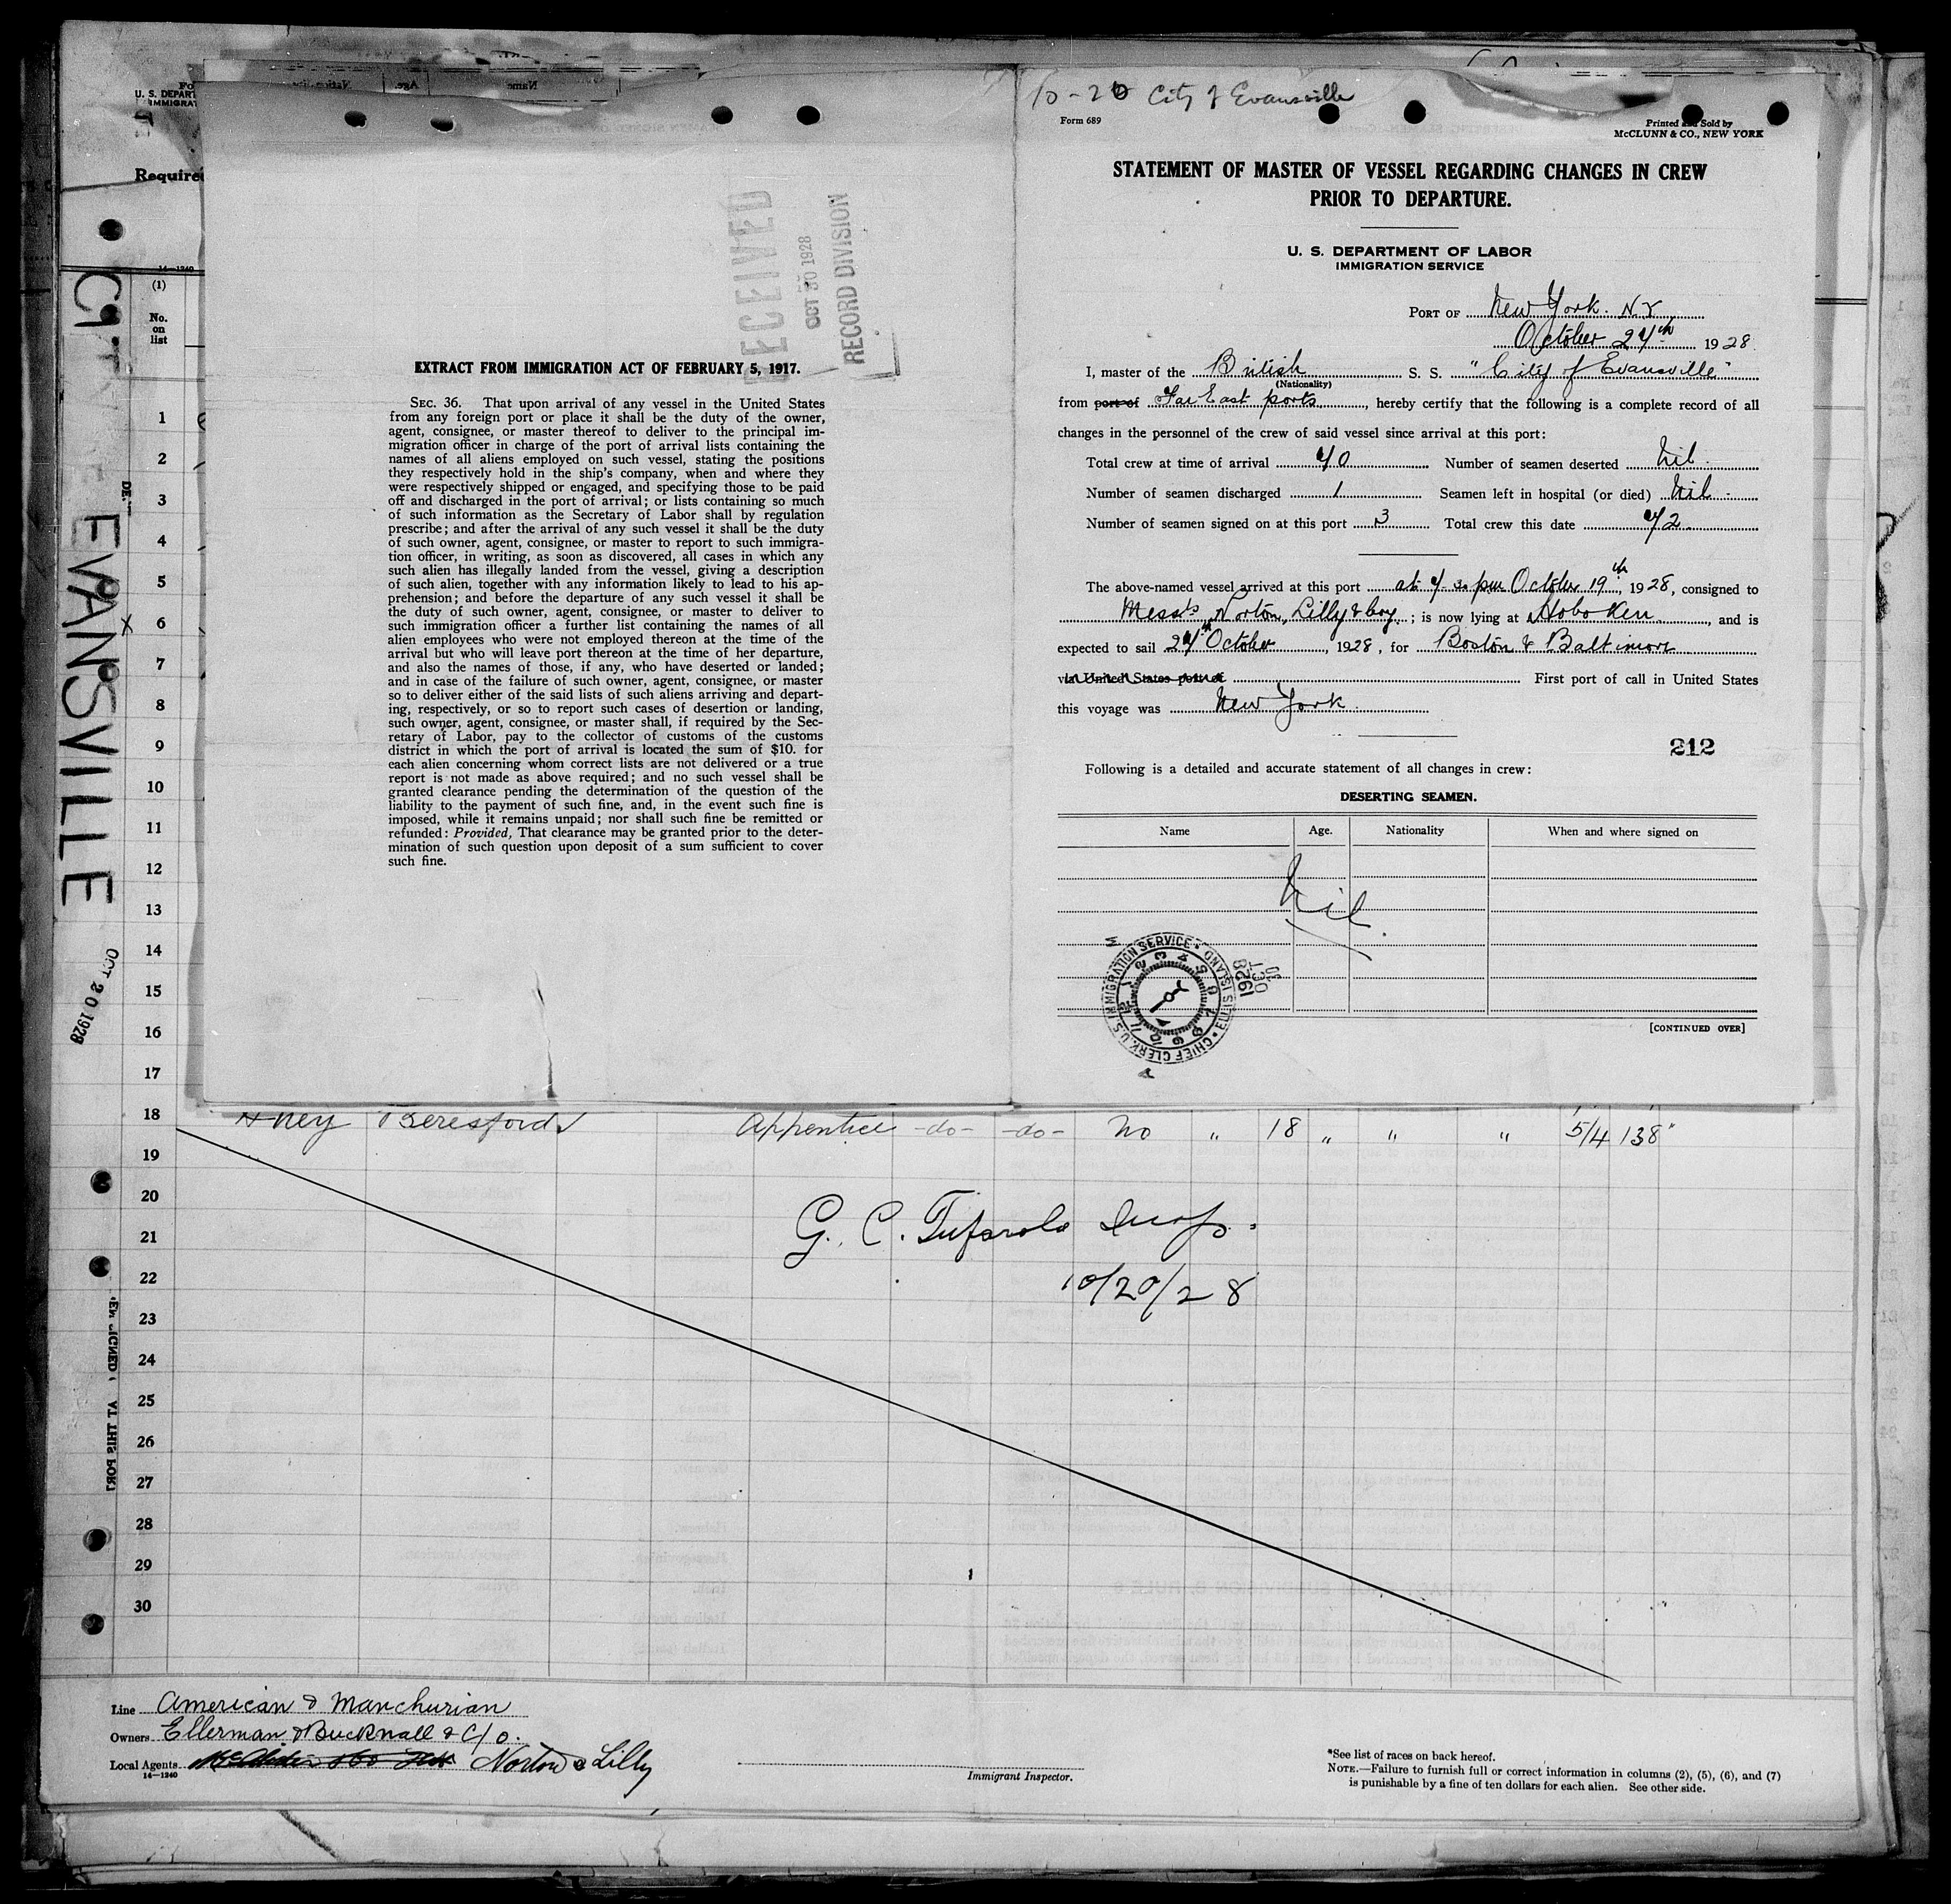 Form 689
10-20 City of Evansville
Printed and Sold by
McCLUNN & CO., NEW YORK
STATEMENT OF MASTER OF VESSEL REGARDING CHANGES IN CREW
PRIOR TO DEPARTURE.
U. S. DEPARTMENT OF LABOR
IMMIGRATION SERVICE
PORT OF New York. N.Y.
October 27th 1928
I, master of the British S. S. "City of Evansville"
(Nationality)
from port of Far East ports, hereby certify that the following is a complete record of all
changes in the personnel of the crew of said vessel since arrival at this port:
Total crew at time of arrival 70 Number of seamen deserted Nil.
Number of seamen discharged 1 Seamen left in hospital (or died) Nil.
Number of seamen signed on at this port 3 Total crew this date 72.
The above-named vessel arrived at this port at 7 pm October 19th, 1928, consigned to
Messrs Norton, Lilly & Coy.; is now lying at Hoboken, and is
expected to sail 27th October, 1928, for Boston & Baltimore
First port of call in United States
this voyage was New York
212
Following is a detailed and accurate statement of all changes in crew:
DESERTING SEAMEN.
Name Age. Nationality When and where signed on
Nil.
U.S. IMMIGRATION SERVICE • ELLIS ISLAND • CHIEF CLERK
OCT 30 1928
[CONTINUED OVER]
RECEIVED
OCT 30 1928
RECORD DIVISION
EXTRACT FROM IMMIGRATION ACT OF FEBRUARY 5, 1917.
SEC. 36. That upon arrival of any vessel in the United States
from any foreign port or place it shall be the duty of the owner,
agent, consignee, or master thereof to deliver to the principal im-
migration officer in charge of the port of arrival lists containing the
names of all aliens employed on such vessel, stating the positions
they respectively hold in the ship's company, when and where they
were respectively shipped or engaged, and specifying those to be paid
off and discharged in the port of arrival; or lists containing so much
of such information as the Secretary of Labor shall by regulation
prescribe; and after the arrival of any such vessel it shall be the duty
of such owner, agent, consignee, or master to report to such immigra-
tion officer, in writing, as soon as discovered, all cases in which any
such alien has illegally landed from the vessel, giving a description
of such alien, together with any information likely to lead to his ap-
prehension; and before the departure of any such vessel it shall be
the duty of such owner, agent, consignee, or master to deliver to
such immigration officer a further list containing the names of all
alien employees who were not employed thereon at the time of the
arrival but who will leave port thereon at the time of her departure,
and also the names of those, if any, who have deserted or landed;
and in case of the failure of such owner, agent, consignee, or master
so to deliver either of the said lists of such aliens arriving and depart-
ing, respectively, or so to report such cases of desertion or landing,
such owner, agent, consignee, or master shall, if required by the Sec-
retary of Labor, pay to the collector of customs of the customs
district in which the port of arrival is located the sum of $10. for
each alien concerning whom correct lists are not delivered or a true
report is not made as above required; and no such vessel shall be
granted clearance pending the determination of the question of the
liability to the payment of such fine, and, in the event such fine is
imposed, while it remains unpaid; nor shall such fine be remitted or
refunded: Provided, That clearance may be granted prior to the deter-
mination of such question upon deposit of a sum sufficient to cover
such fine.
U. S. DEPART
IMMIGRAT
Required
14—1240
(1)
No.
on
list
CITY OF EVANSVILLE
OCT 20 1928
1
2
3
4
5
X 6
7
8
9
10
11
12
13
14
15
16
17
18 Beresford Apprentice -do- -do- No " 18 " " " 5/4 138"
19
20
21
22
23
24
25
26
27
28
29
30
G. C. Tufarolo Insp.
10/20/28
Line American & Manchurian
Owners Ellerman & Bucknall & C/o.
Local Agents Norton & Lilly
14—1240
Immigrant Inspector.
*See list of races on back hereof.
NOTE.—Failure to furnish full or correct information in columns (2), (5), (6), and (7)
is punishable by a fine of ten dollars for each alien. See other side.